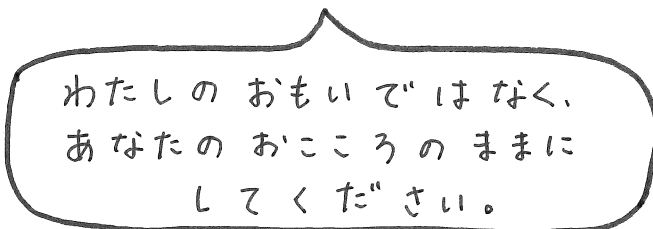 わたしのおもいではなく、
あなたのおこころのままに
してください。